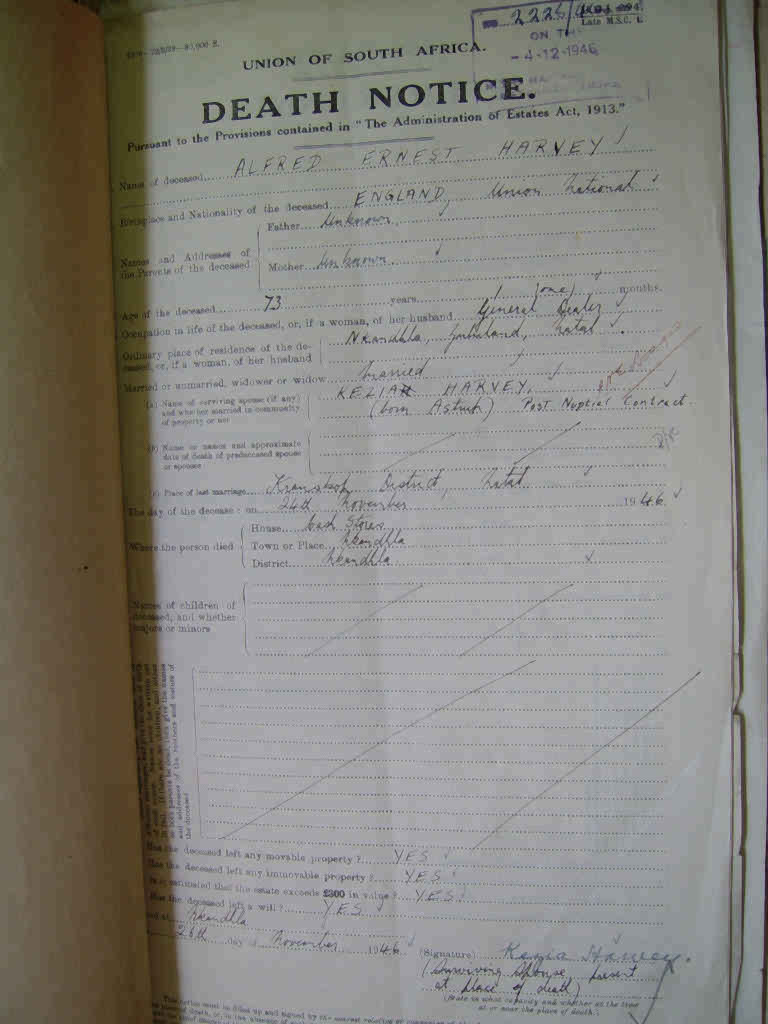 2225/
Late M.S.C. 1.
ON TH
-4-12-1946
UNION OF SOUTH AFRICA.
DEATH NOTICE.
Pursuant to the Provisions contained in "The Administration of Estates Act, 1913."
Name of deceased ALFRED ERNEST HARVEY
Birthplace and Nationality of the deceased ENGLAND, Union National
Names and Addresses of the Parents of the deceased
Father Unknown
Mother Unknown.
Age of the deceased 73 years 1 (one) months.
Occupation in life of the deceased, or, if a woman, of her husband General Dealer
Ordinary place of residence of the deceased, or, if a woman, of her husband
Nkandhla, Zululand, Natal.
Married or unmarried, widower or widow Married
(a) Name of surviving spouse (if any) and whether married in community of property or not
HARVEY,
(born) Post Nuptial Contract.
(b) Name or names and approximate date of death of predeceased spouse or spouses
(c) Place of last marriage Kranskop District, Natal
The day of the decease: on 24th November 1946
Where the person died
House Cash Stores
Town or Place Nkandhla
District Nkandhla
Names of children of deceased, and whether majors or minors
Has the deceased left any movable property? YES
Has the deceased left any immovable property? YES
Is it estimated that the estate exceeds £300 in value? YES
Has the deceased left a will? YES
at Nkandhla
26th day of November 1946
(Signature) Kezia Harvey.
(Surviving Spouse, present
at place of death)
(State in what capacity and whether at the time
at or near the place of death.)